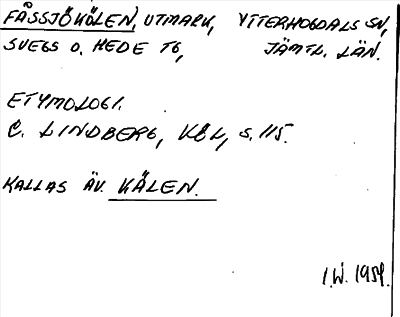 FÅSSJÖKÖLEN, UTMARK, YTTERHOGDALS SN,
SVEGS O. HEDE TG, JÄMTL. LÄN.
ETYMOLOGI.
C. LINDBERG, KÖL, S. 115.
KALLAS ÄV. KÄLEN.
I.W. 1959.